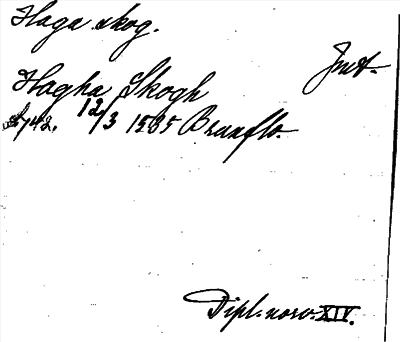 Haga skog.
Jmt.
Hagha Skogh
12/3 1535 Brunflo.
Dipl. norv. XIV.